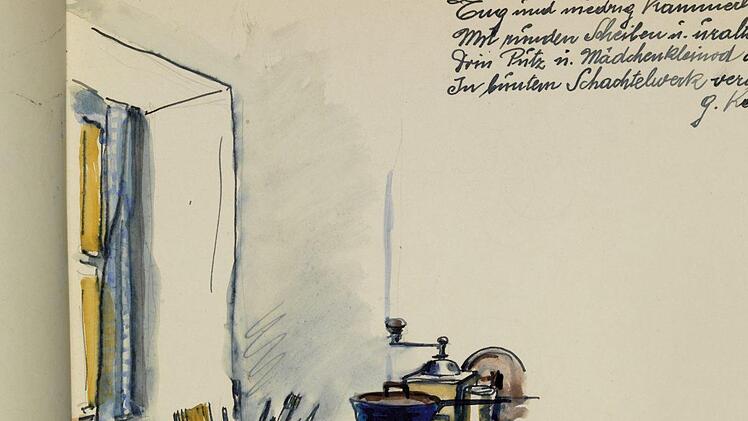 Eng und niedrig Kämmerl
Mit runden Scheiben u. uralt
Drin Putz u. Mädchenkleinod
In buntem Schachtelwerk ver
G. Ke